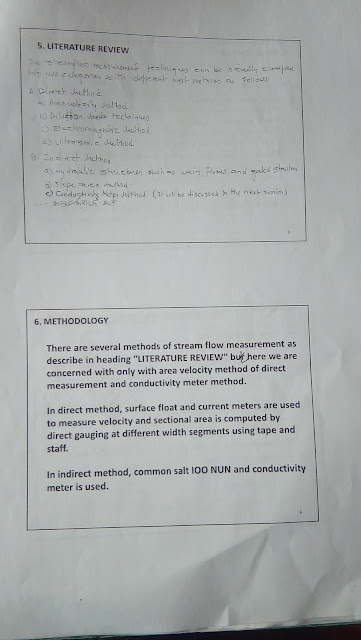 5. LITERATURE REVIEW
The streamflow measurement techniques can be broadly classified
into two categories with different methods as follows
A. Direct Method
a) Area velocity Method
b) Dilution techniques
c) Electromagnetic Method
d) Ultrasonic Method
B. Indirect Method
a) Hydraulic structures such as weirs, flumes and gated structures
b) Slope area method
c) Conductivity Meter Method (It will be discussed in the next section)
6. METHODOLOGY
There are several methods of stream flow measurement as
describe in heading "LITERATURE REVIEW" but here we are
concerned with only with area velocity method of direct
measurement and conductivity meter method.
In direct method, surface float and current meters are used
to measure velocity and sectional area is computed by
direct gauging at different width segments using tape and
staff.
In indirect method, common salt IOO NUN and conductivity
meter is used.